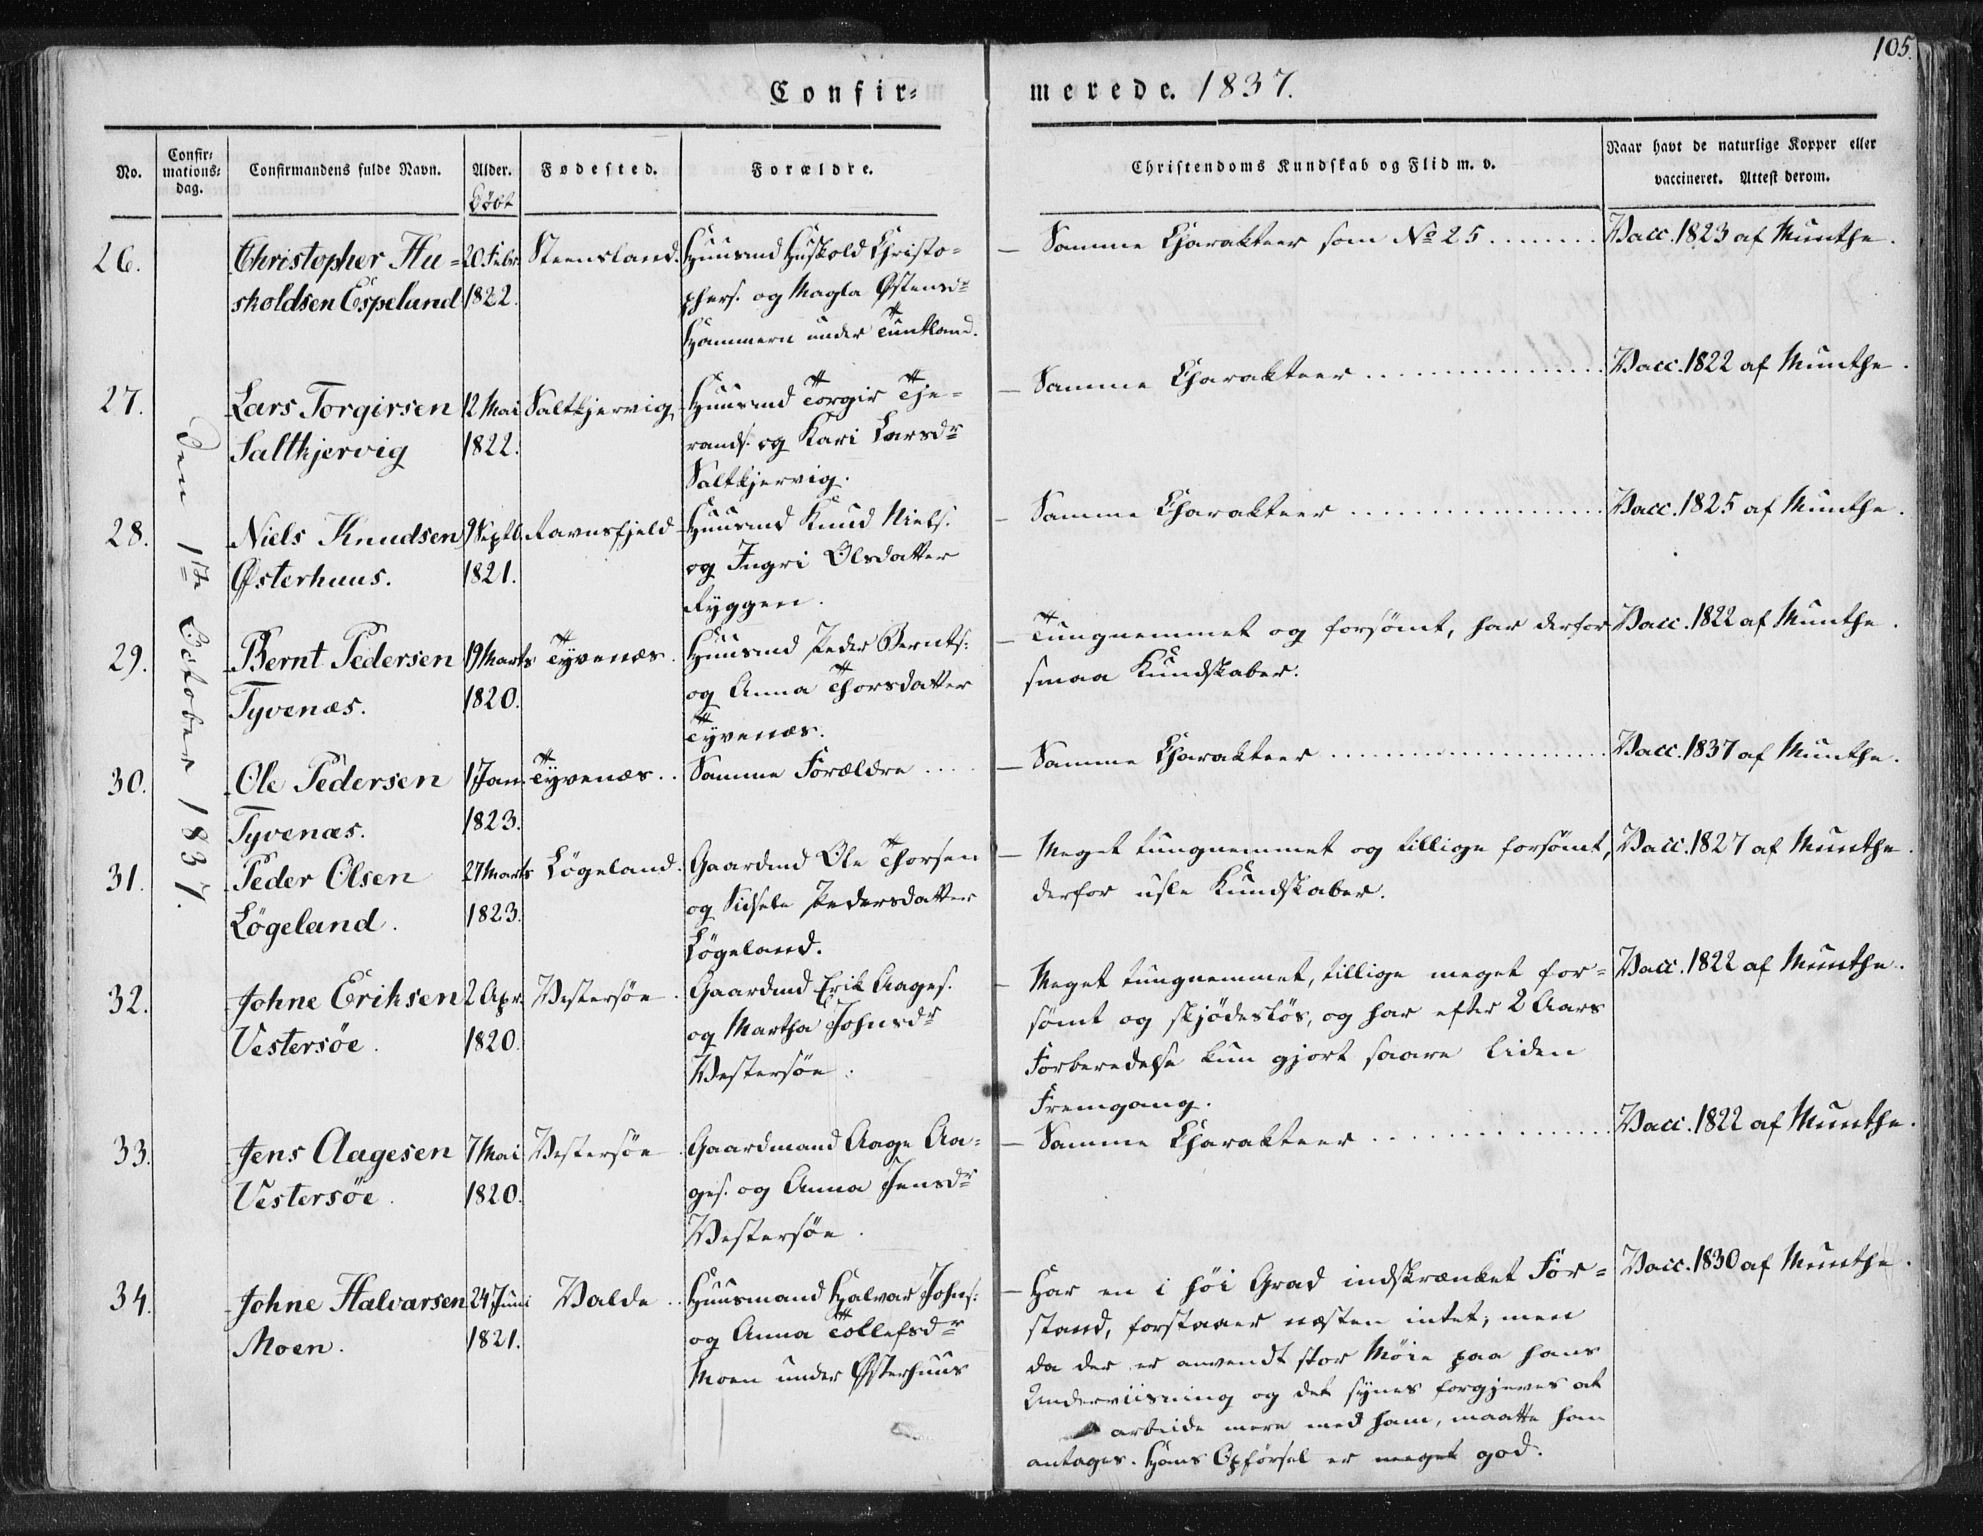 105.
Confir=
merede. 1837.
No.
Confir=
mations=
dag.
Confirmandens fulde Navn.
Alder.
Døbt
Fødested.
Forældre.
Christendoms Kundskab og Flid m. v.
Naar havt de naturlige Kopper eller
vaccineret. Attest derom.
Den 1ste October 1837.
26.
Christopher Hu=
skoldsen Espeland
20. Febr.
1822.
Steensland.
Huusmd Huskold Christo=
phers. og Magla Østensdr
Hammern under Tuntland.
— Samme Charakteer som No 25 ........
Vacc. 1823 af Munthe.
27.
Lars Torgirsen
Saltkjervig
12 Mai
1822.
Saltkjervig
Huusmd Torgir Tje=
rands. og Kari Larsdr
Saltkjervig.
— Samme Charakteer ................
Vacc. 1822 af Munthe.
28.
Niels Knudsen
Østerhuus.
9 Septb.
1821.
Ravnsfjeld
Huusmd Knud Niels.
og Ingri Olsdatter
Ryggen.
— Samme Charakteer ................
Vacc. 1825 af Munthe.
29.
Bernt Pedersen
Tyvenæs.
19 Marts
1820.
Tyvenæs.
Huusmd Peder Bernts:
og Anna Thorsdatter
Tyvenæs.
— Tungnemmet og forsømt, har derfor
smaa Kundskaber.
Vacc. 1822 af Munthe.
30.
Ole Pedersen
Tyvenæs.
1 Jan.
1823.
Tyvenæs..
Samme Forældre ....
— Samme Charakteer ................
Vacc. 1837 af Munthe.
31.
Peder Olsen
Løgeland.
27 Marts
1823.
Løgeland.
Gaardmd Ole Thorsen
og Sidsele Pedersdatter
Løgeland.
— Meget tungnemmet og tillige forsømt,
derfor usle Kundskaber.
Vacc. 1827 af Munthe.
32.
Johne Eriksen
Vestersøe.
2 Apr.
1820.
Vestersøe.
Gaardmd Erik Aages.
og Martha Johnsdr
Vestersøe.
— Meget tungnemmet, tillige meget for=
sømt og skjødesløs, og har efter 2 Aars
Forberedelse kun gjort saare liden
Fremgang.
Vacc. 1822 af Munthe.
33.
Jens Aagesen
Vestersøe.
7 Mai
1820.
Vestersøe.
Gaardmand Aage Aa=
ges. og Anna Jensdr
Vestersøe.
— Samme Charakteer ..............
Vacc. 1822 af Munthe.
34.
Johne Halvarsen
Moen.
24 Juni
1821.
Valde..
Huusmand Halvar Johns:
og Anna Tollefsdr
Moen under Østerhuus
— Har en i høi Grad indskrænket For=
stand, forstaaer næsten intet; men
da der er anvendt stor Møie paa hans
Underviisning og det synes forgjeves at
arbeide mere med ham, maatte han
antages. Hans Opførsel er meget god.
Vacc. 1830 af Munthe.